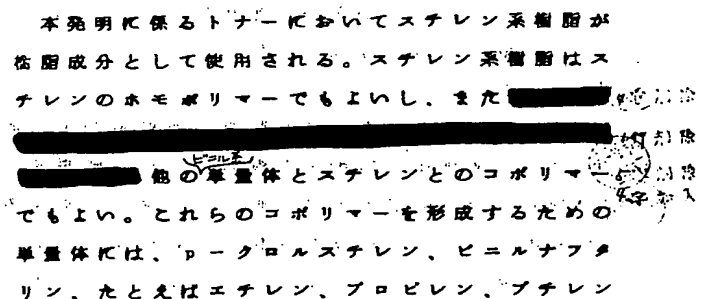 本発明に係るトナーにおいてスチレン系樹脂が
樹脂成分として使用される。スチレン系樹脂はス
チレンのホモポリマーでもよいし、また 削除
削除
ビニル系
他の単量体とスチレンとのコポリマー 削除
でもよい。これらのコポリマーを形成するための 4字加入
単量体には、p－クロルスチレン、ビニルナフタ
リン、たとえばエチレン、プロピレン、ブチレン